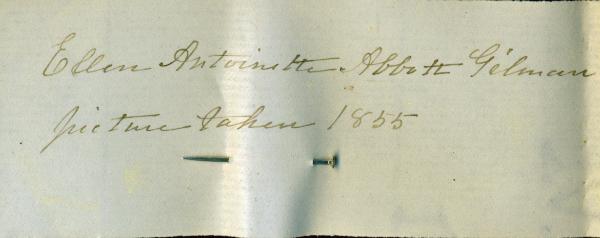 Ellen Antoinette Abbott Gilman
picture taken 1855